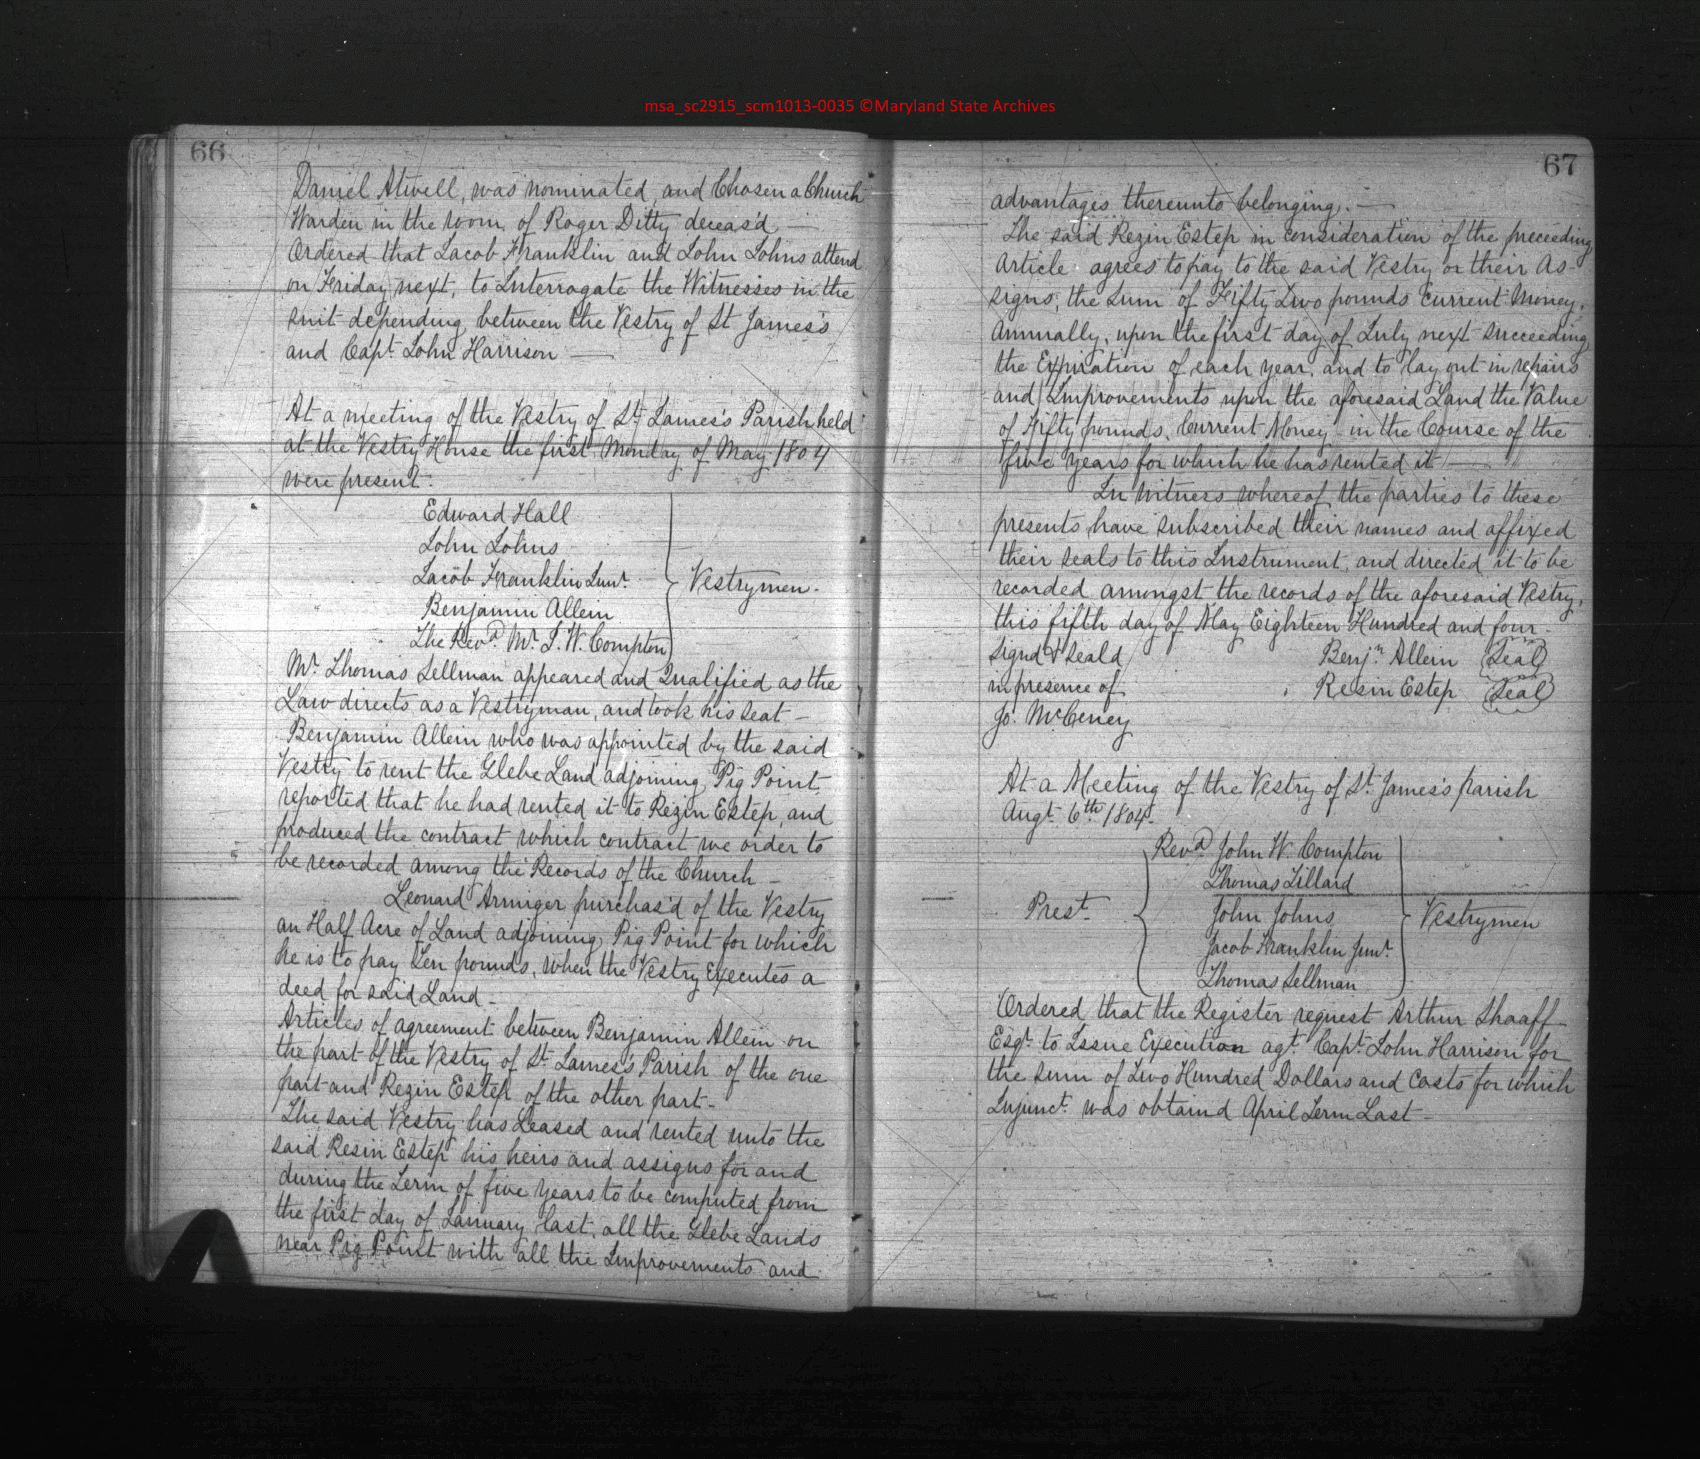 msa_sc2915_scm1013-0035 ©Maryland State Archives
66
Daniel Atwell, was nominated, and Chosen a Church
Warden in the room, of Roger Ditty deceas'd —
Ordered that Jacob Franklin and John Johns attend
on Friday next, to Interrogate the Witnesses in the
suit depending between the Vestry of St James's
and Capt. John Harrison —
At a meeting of the Vestry of St. James's Parish held
at the Vestry House the first Monday of May 1804
were present.
Edward Hall
John Johns
Jacob Franklin Junr.
Benjamin Allein
The Revd. Mr. J. W. Compton
Vestrymen.
Mr. Thomas Sellman appeared and Qualified as the
Law directs as a Vestryman, and took his seat —
Benjamin Allein who was appointed by the said
Vestry to rent the Glebe Land adjoining Pig Point
reported that he had rented it to Rezin Estep, and
produced the contract which contract we order to
be recorded among the Records of the Church —
Leonard Armiger purchas'd of the Vestry
an Half Acre of Land adjoining Pig Point for which
he is to pay Ten pounds, when the Vestry Executes a
deed for said Land —
Articles of agreement between Benjamin Allein on
the part of the Vestry of St. James's Parish of the one
part and Rezin Estep of the other part —
The said Vestry has Leased and rented unto the
said Resin Estep his heirs and assigns for and
during the Term of five years to be computed from
the first day of January last, all the Glebe Lands
near Pig Point with all the Improvements and
67
advantages thereunto belonging. —
The said Rezin Estep in consideration of the preceeding
Article agrees to pay to the said Vestry or their As-
signs, the sum of Fifty Two pounds current Money,
annually, upon the first day of July next succeeding
the Expiration of each year, and to lay out in repairs
and Improvements upon the aforesaid Land the Value
of Fifty pounds, Current Money in the Course of the
five years for which he has rented it —
In witness whereof the parties to these
presents have subscribed their names and affixed
their seals to this Instrument, and directed it to be
recorded amongst the records of the aforesaid Vestry,
this fifth day of May Eighteen Hundred and four —
Signd & Seald Benjn. Allein (Seal)
in presence of Resin Estep (Seal)
Jo. McCeney
At a Meeting of the Vestry of St. James's parish
Augt. 6th 1804.
Revd. John W. Compton
Thomas Tillard
Prest. John Johns Vestrymen
Jacob Franklin Junr.
Thomas Sellman
Ordered that the Register request Arthur Shaaff
Esqr. to Issue Execution agt. Capt. John Harrison for
the sum of Two Hundred Dollars and Costs for which
Injunct. was obtaind April Term Last —